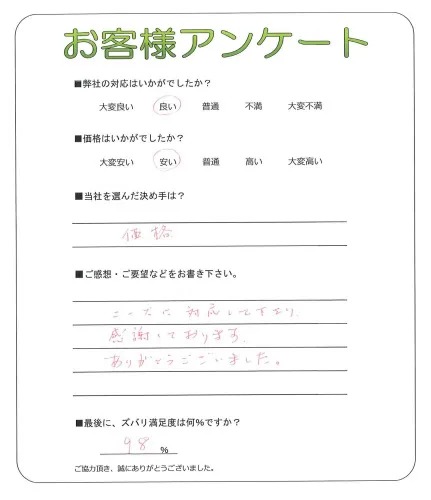 お客様アンケート
■弊社の対応はいかがでしたか？
大変良い 良い 普通 不満 大変不満
■価格はいかがでしたか？
大変安い 安い 普通 高い 大変高い
■当社を選んだ決め手は？
価格
■ご感想・ご要望などをお書き下さい。
ニーズに対応して下さり、
感謝しております。
ありがとうございました。
■最後に、ズバリ満足度は何%ですか？
98 %
ご協力頂き、誠にありがとうございました。